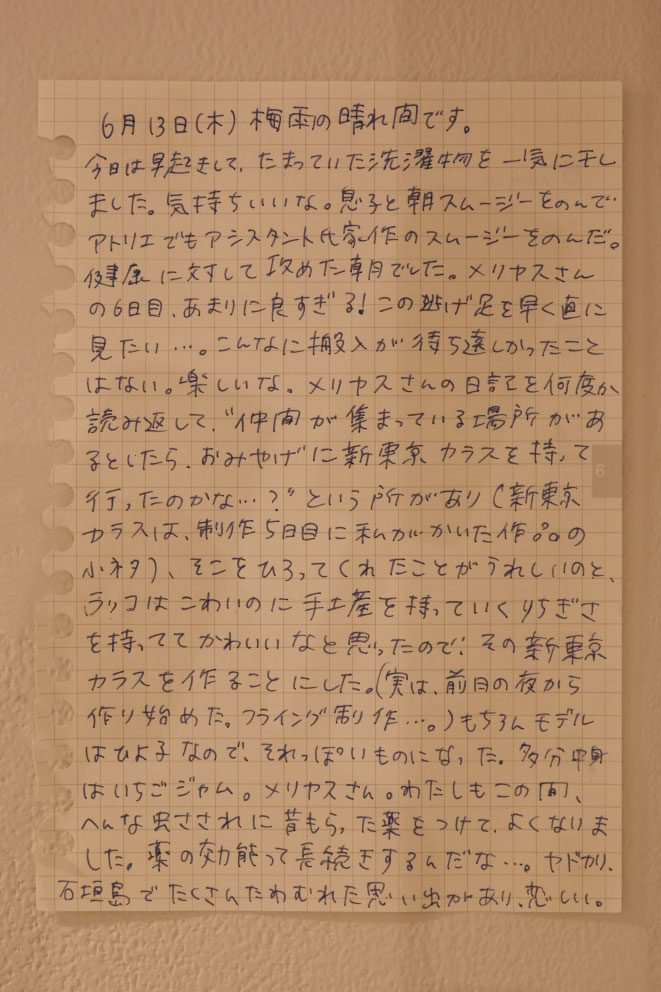 6月13日(木) 梅雨の晴れ間です。
今日は早起きして、たまっていた洗濯物を一気に干し
ました。気持ちいいな。息子と朝スムージーをのんで
アトリエでもアシスタント氏家作のスムージーをのんだ。
健康に対して攻めた朝でした。メリヤスさん
の6日目、あまりに良すぎる!この逃げ足を早く直に
見たい…。こんなに搬入が待ち遠しかったこと
はない。楽しいな。メリヤスさんの日記を何度か
読み返して、“仲間が集まっている場所があ
るとしたら、おみやげに新東京カラスを持って
行ったのかな…?”という所があり(新東京
カラスは、制作5日目に私がかいた作品の
小ネタ)、そこをひろってくれたことがうれしいのと、
ラッコはこわいのに手土産を持っていくりちぎさ
を持っててかわいいなと思ったので、その新東京
カラスを作ることにした。(実は、前日の夜から
作り始めた。フライング制作…。)もちろんモデル
はひよ子なので、それっぽいものになった。多分中身
はいちごジャム。メリヤスさん。わたしもこの間、
へんな虫さされに昔もらった薬をつけて、よくなりま
した。薬の効能って長続きするんだな…。ヤドカリ、
石垣島でたくさんたわむれた思い出があり、恋しい。
6